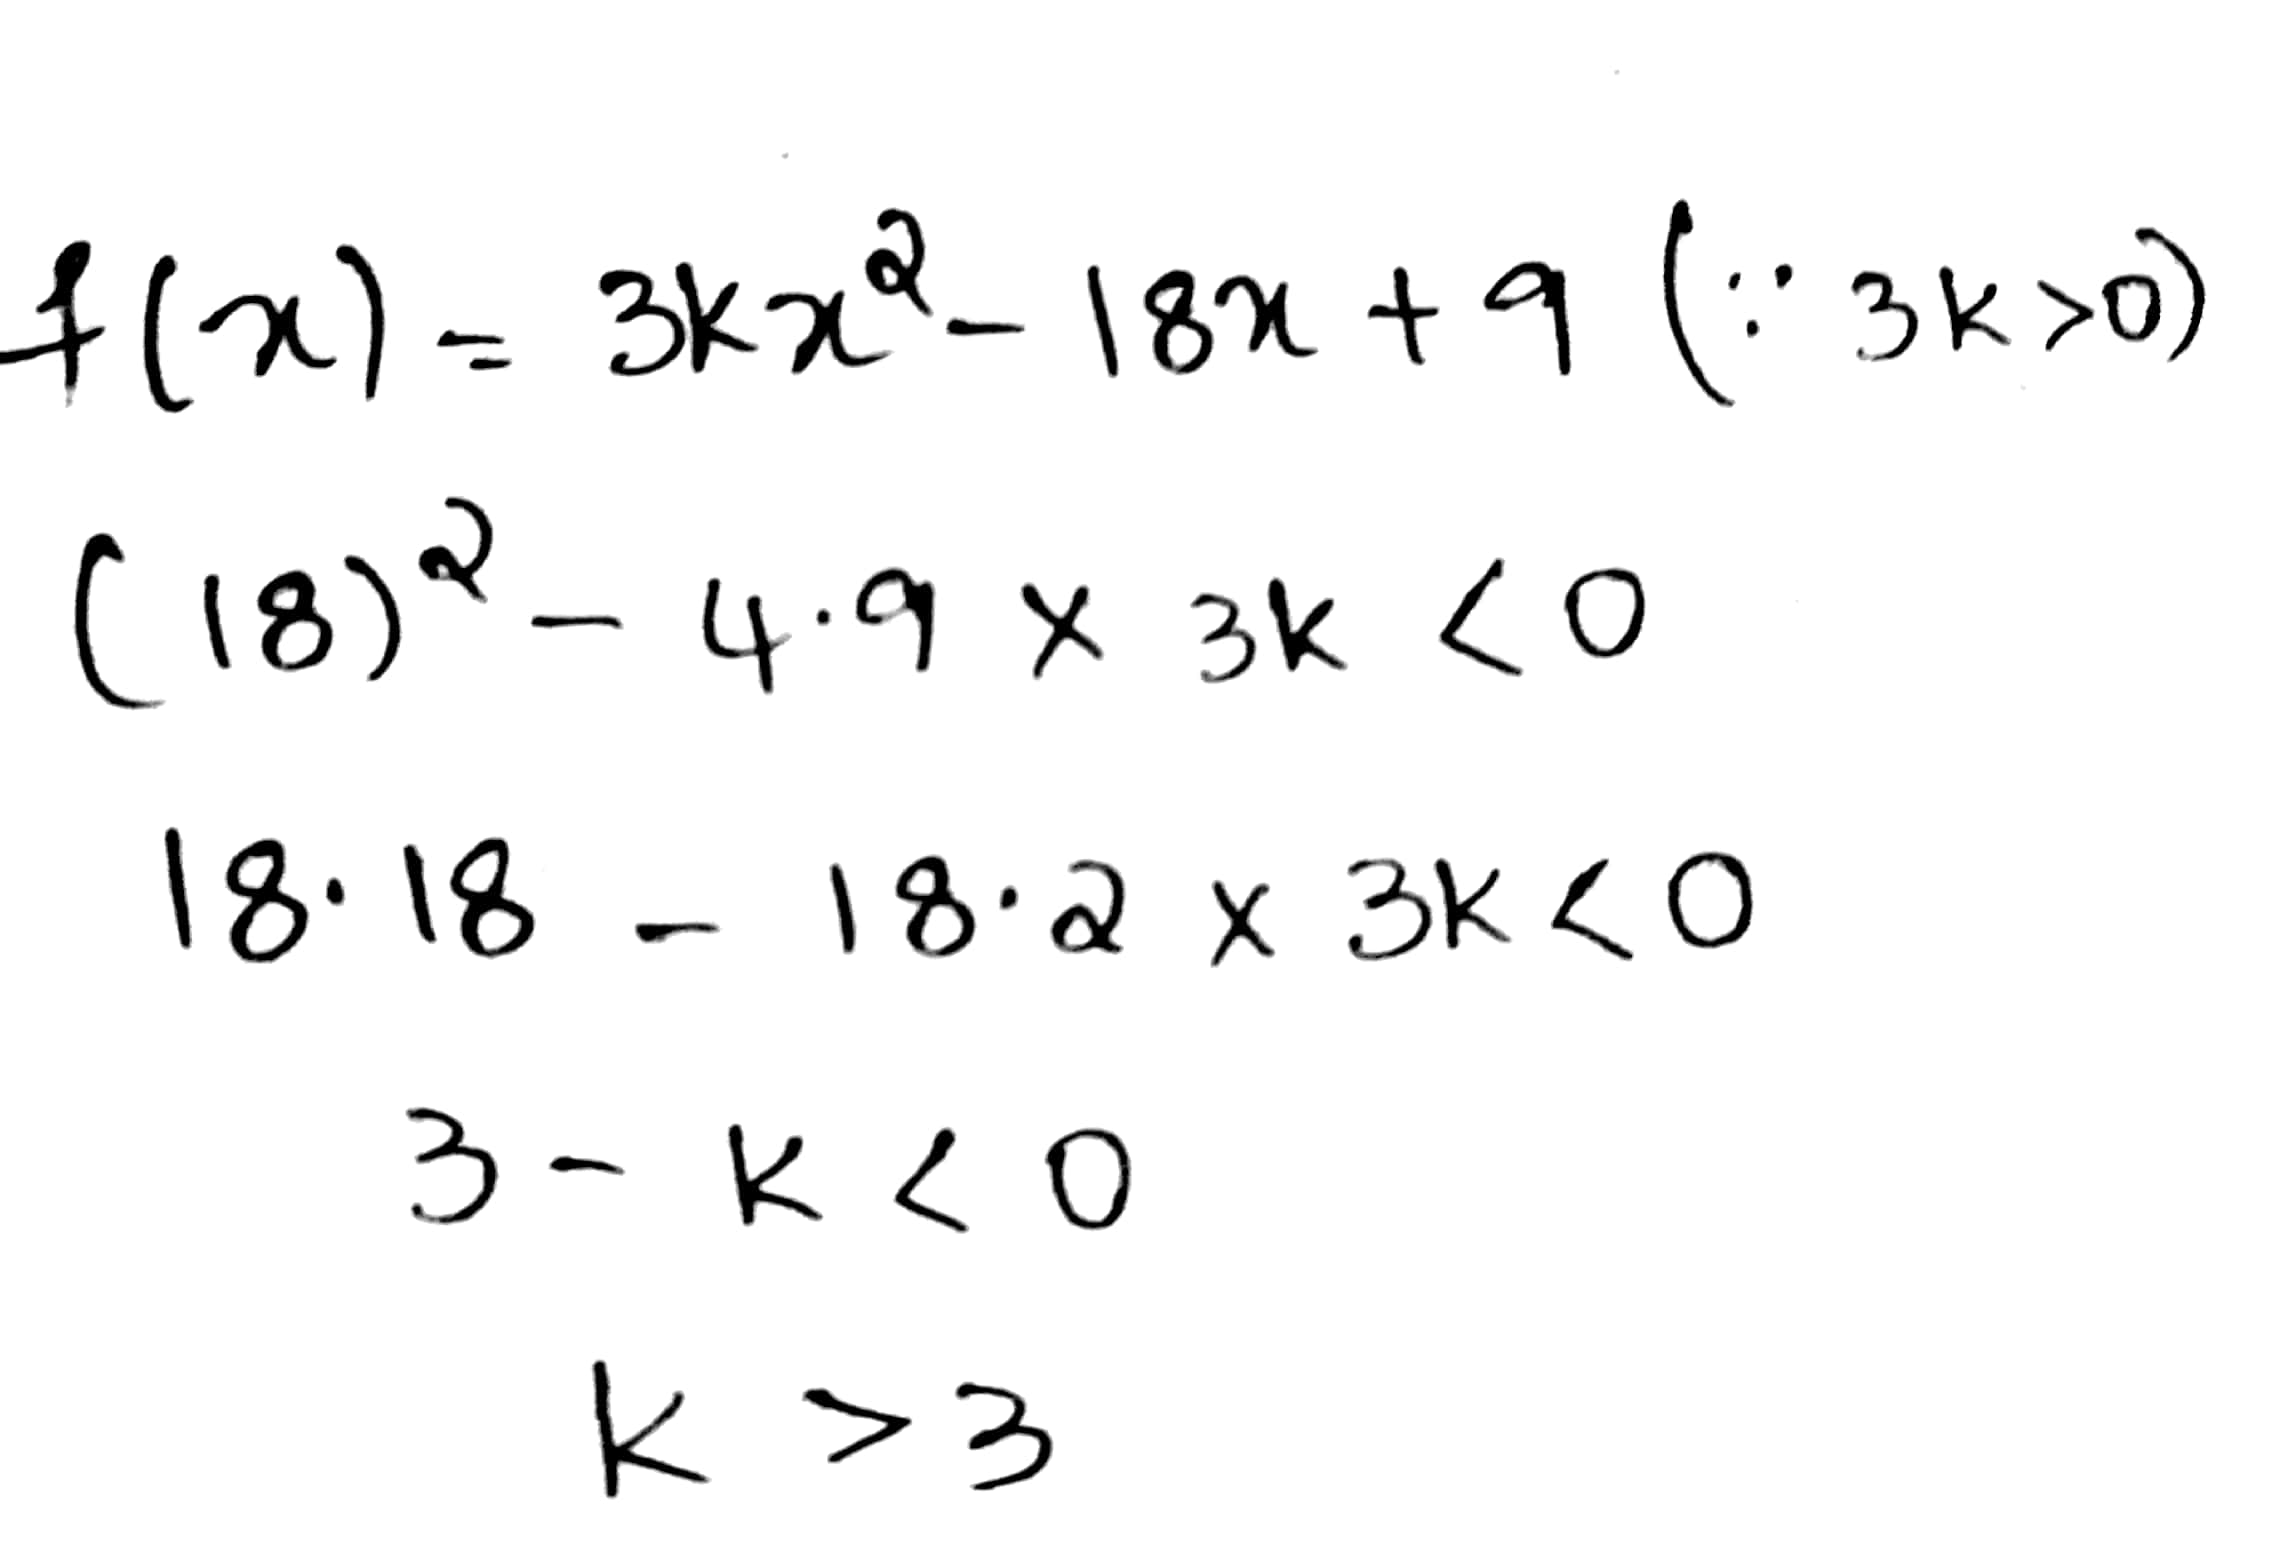 f(x) = 3kx² - 18x + 9 (∵ 3k>0)
(18)² - 4·9 × 3k < 0
18·18 - 18·2 × 3k < 0
3 - k < 0
k > 3